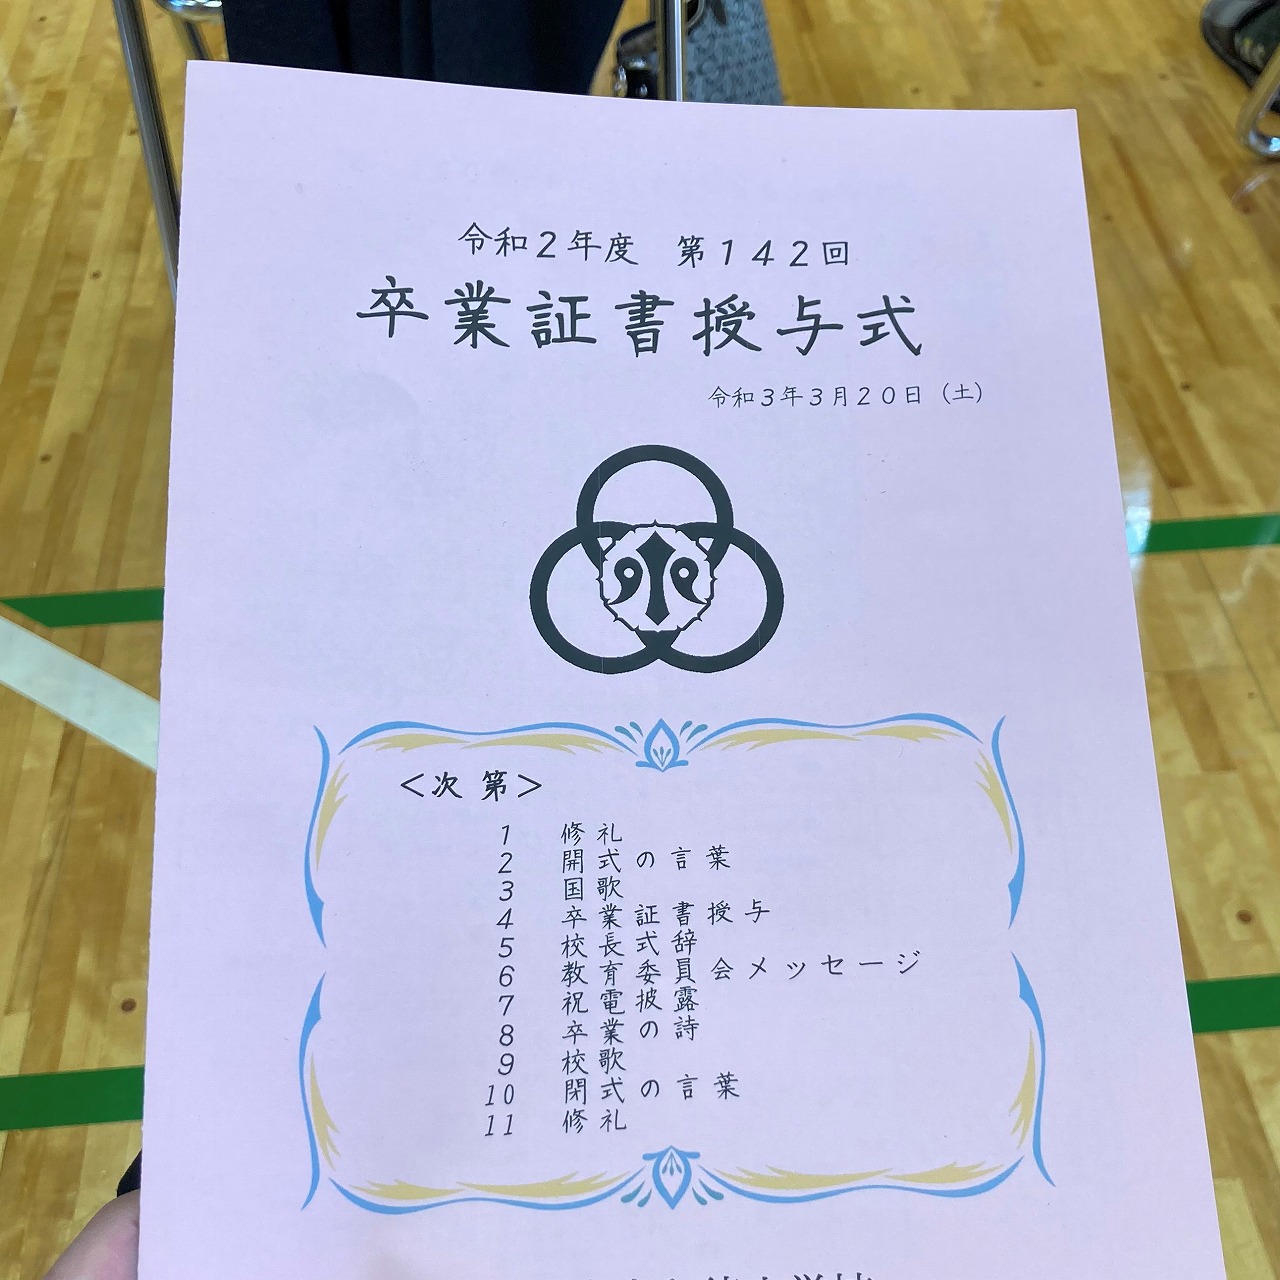 令和2年度 第142回
卒業証書授与式
令和3年3月20日（土）
＜次 第＞
1 修礼
2 開式の言葉
3 国歌
4 卒業証書授与
5 校長式辞
6 教育委員会メッセージ
7 祝電披露
8 卒業の詩
9 校歌
10 閉式の言葉
11 修礼